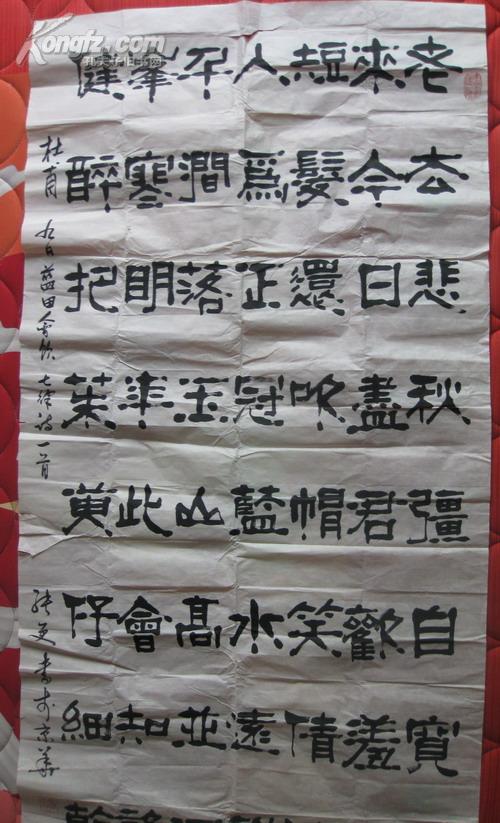 Kongfz.com
孔夫子旧书网
老去悲秋彊自寬
來今日盡君歡羞
短髮還吹帽笑倩
人爲正冠藍水遠
千澗落玉山高並
峯寒明年此會知
健醉把茱萸仔細
杜甫 九日藍田會飲 七律詩一首 書於京華